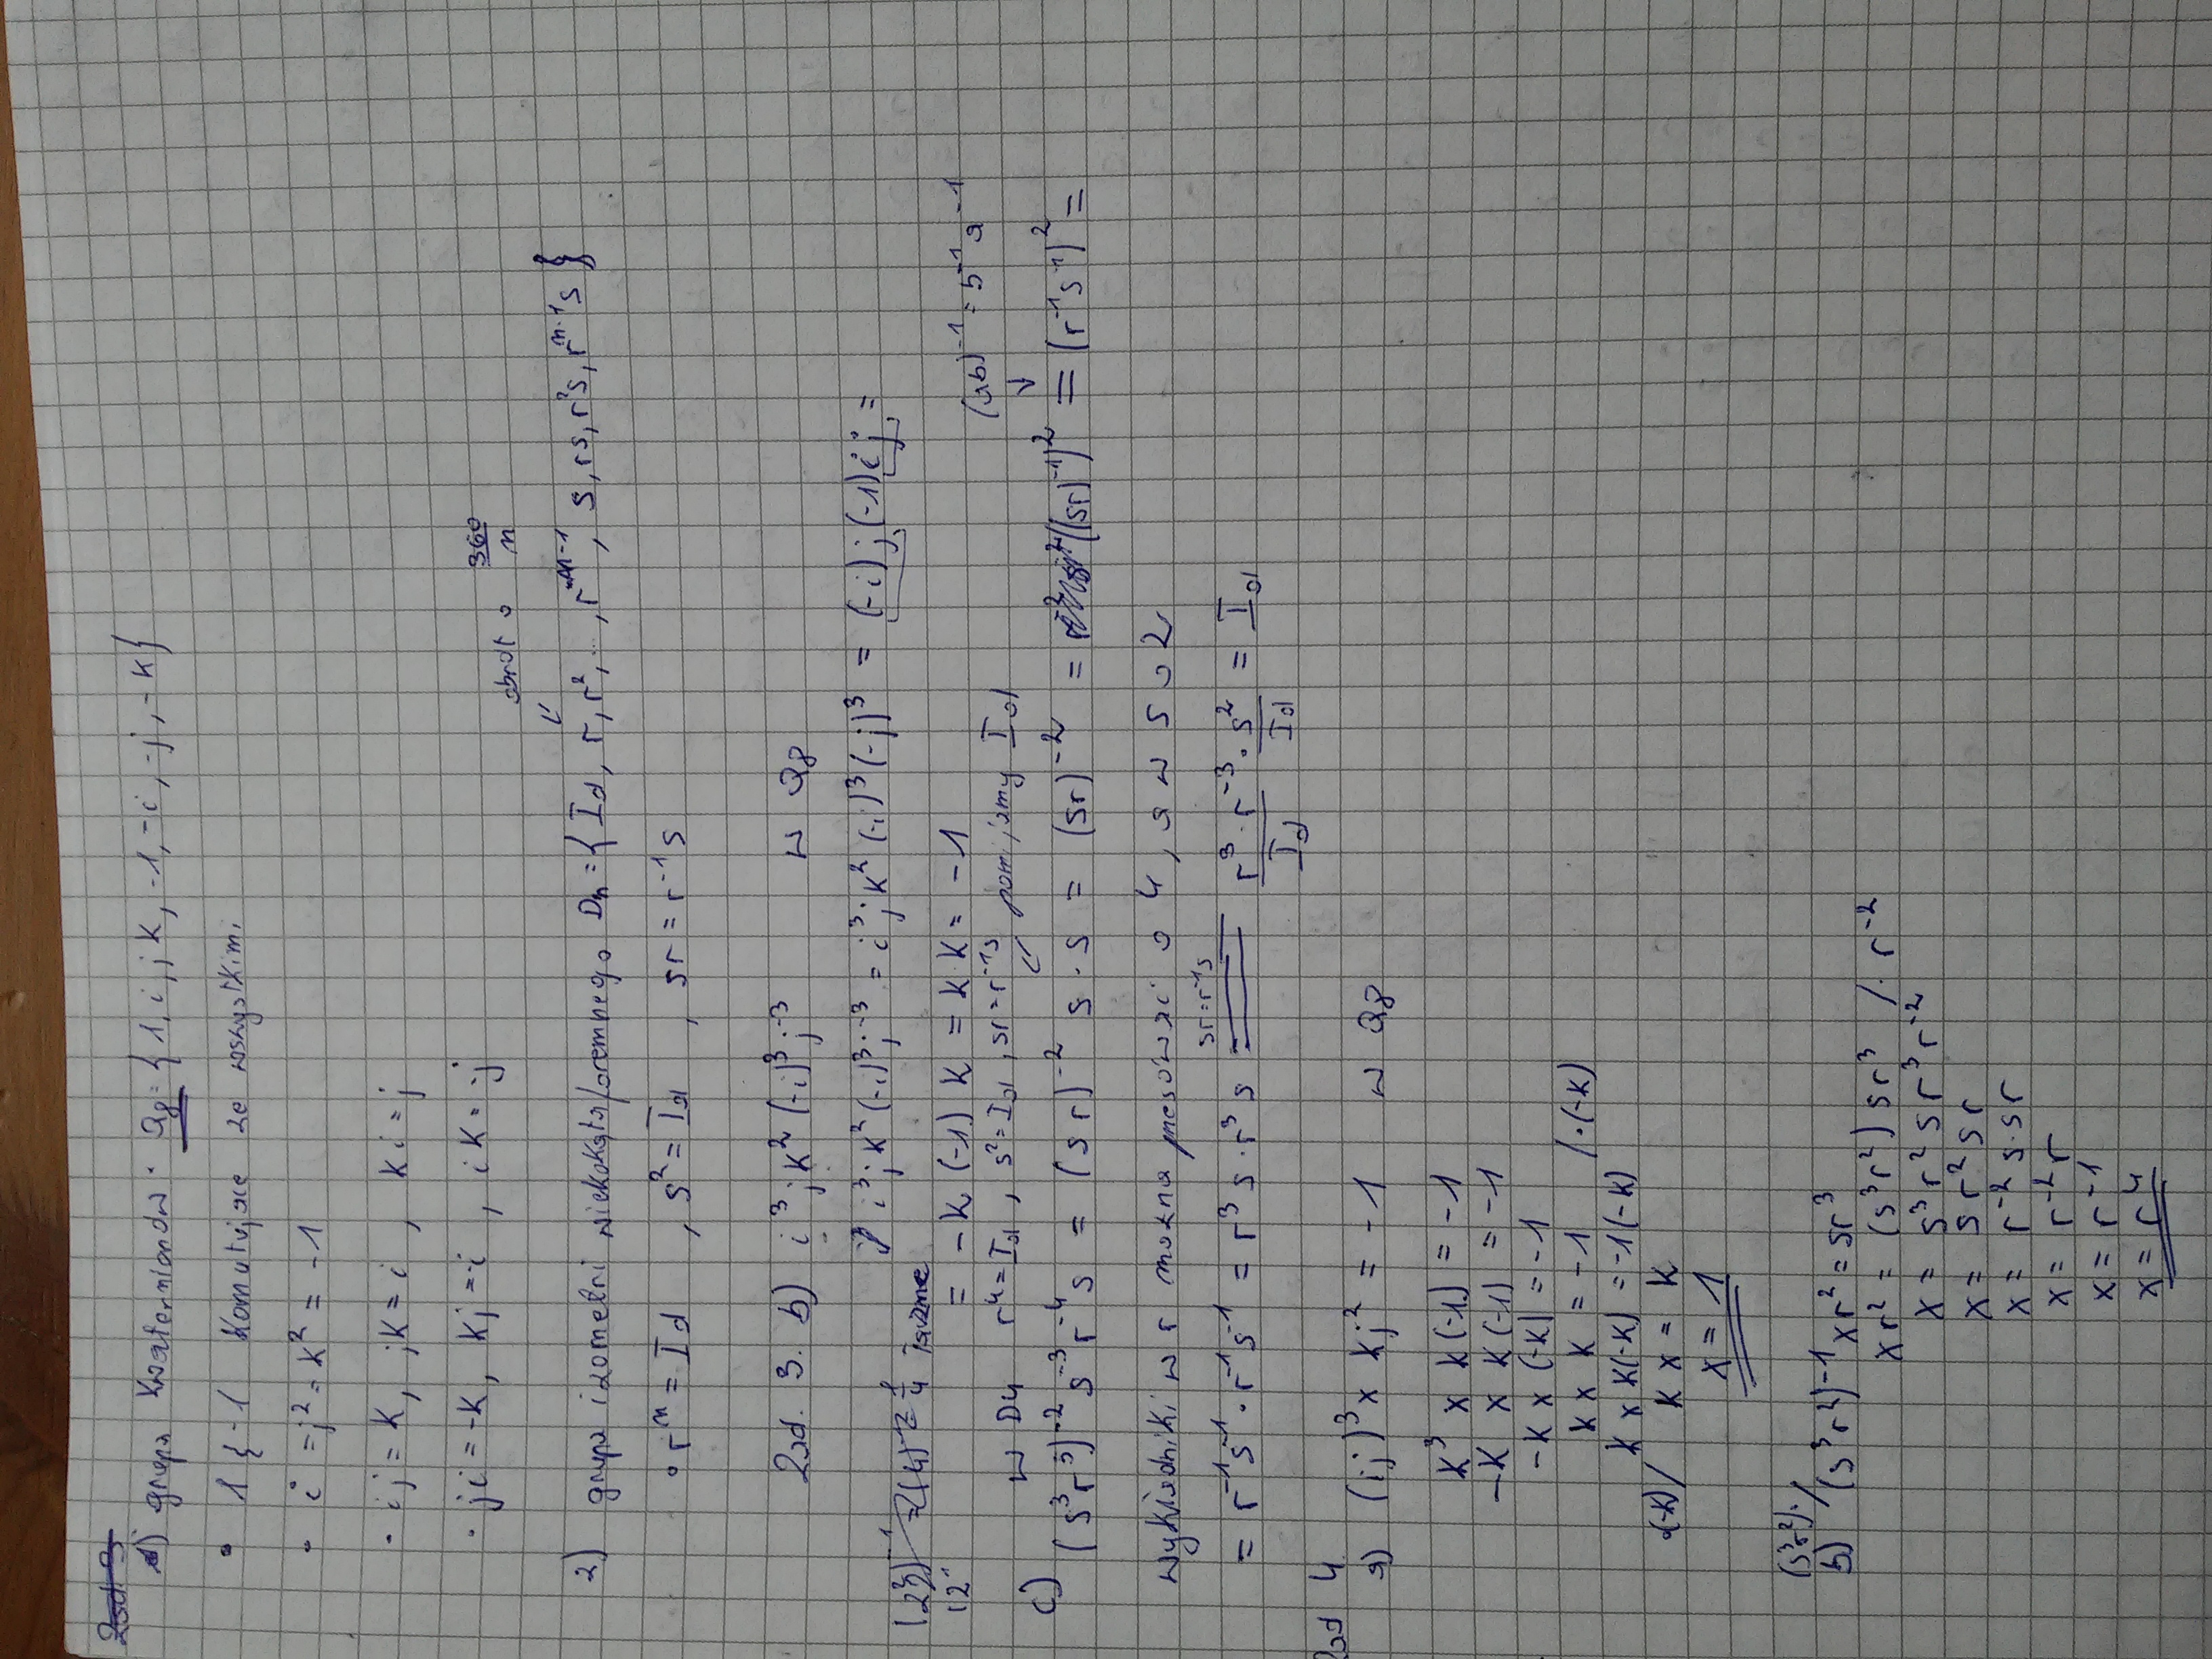 Zad. 3
1) grupa kwaternionów · Q8 = {1, i, j k, -1, -i, -j, -k}
• 1 { -1 komutujące ze wszystkimi
- i = j² = k² = -1
- ij = k, jk = i, ki = j
- ji = -k, kj = -i, ik = -j
obrót o 360/n
2) grupa izometrii Dn = {Id, r, r², ..., rⁿ⁻¹, s, rs, r²s, rⁿ⁻¹s}
• rⁿ = Id, s² = Id, sr = r⁻¹s
Zad. 3. b) i³jk²(-i)³j⁻³ w Q8
i³jk²(-i)³j⁻³ = i³jk²(-i)³(-j)³ = (-i)j(-1)ij =
= -k (-1) k = k·k = -1
(ab)⁻¹ = b⁻¹a⁻¹
w D4 r⁴ = Id, s² = Id, sr = r⁻¹s pomijamy Id
c) (s³r⁵)⁻²s⁻³r⁻⁴s = (sr)⁻² s·s = (sr)⁻² = ((sr)⁻¹)² = (r⁻¹s⁻¹)² =
wykładniki w r można przesówać o 4, a w s o 2
sr = r⁻¹s
= r⁻¹s⁻¹·r⁻¹s⁻¹ = r³s·r³s = r³·r⁻³·s² = Id
Id Id
Zad 4.
a) (ij)³x kj² = -1 w Q8
k³ x k(-1) = -1
-k x k(-1) = -1
-k x (-k) = -1
k x k = -1 /·(-k)
k x k(-k) = -1(-k)
·(-k)/ k x = k
x = 1
(s³r²)· /
b) (s³r²)⁻¹xr² = sr³
xr² = (s³r²)sr³ /· r⁻²
x = s³r²sr³r⁻²
x = sr²sr
x = r⁻²s·sr
x = r⁻²r
x = r⁻¹
x = r⁴